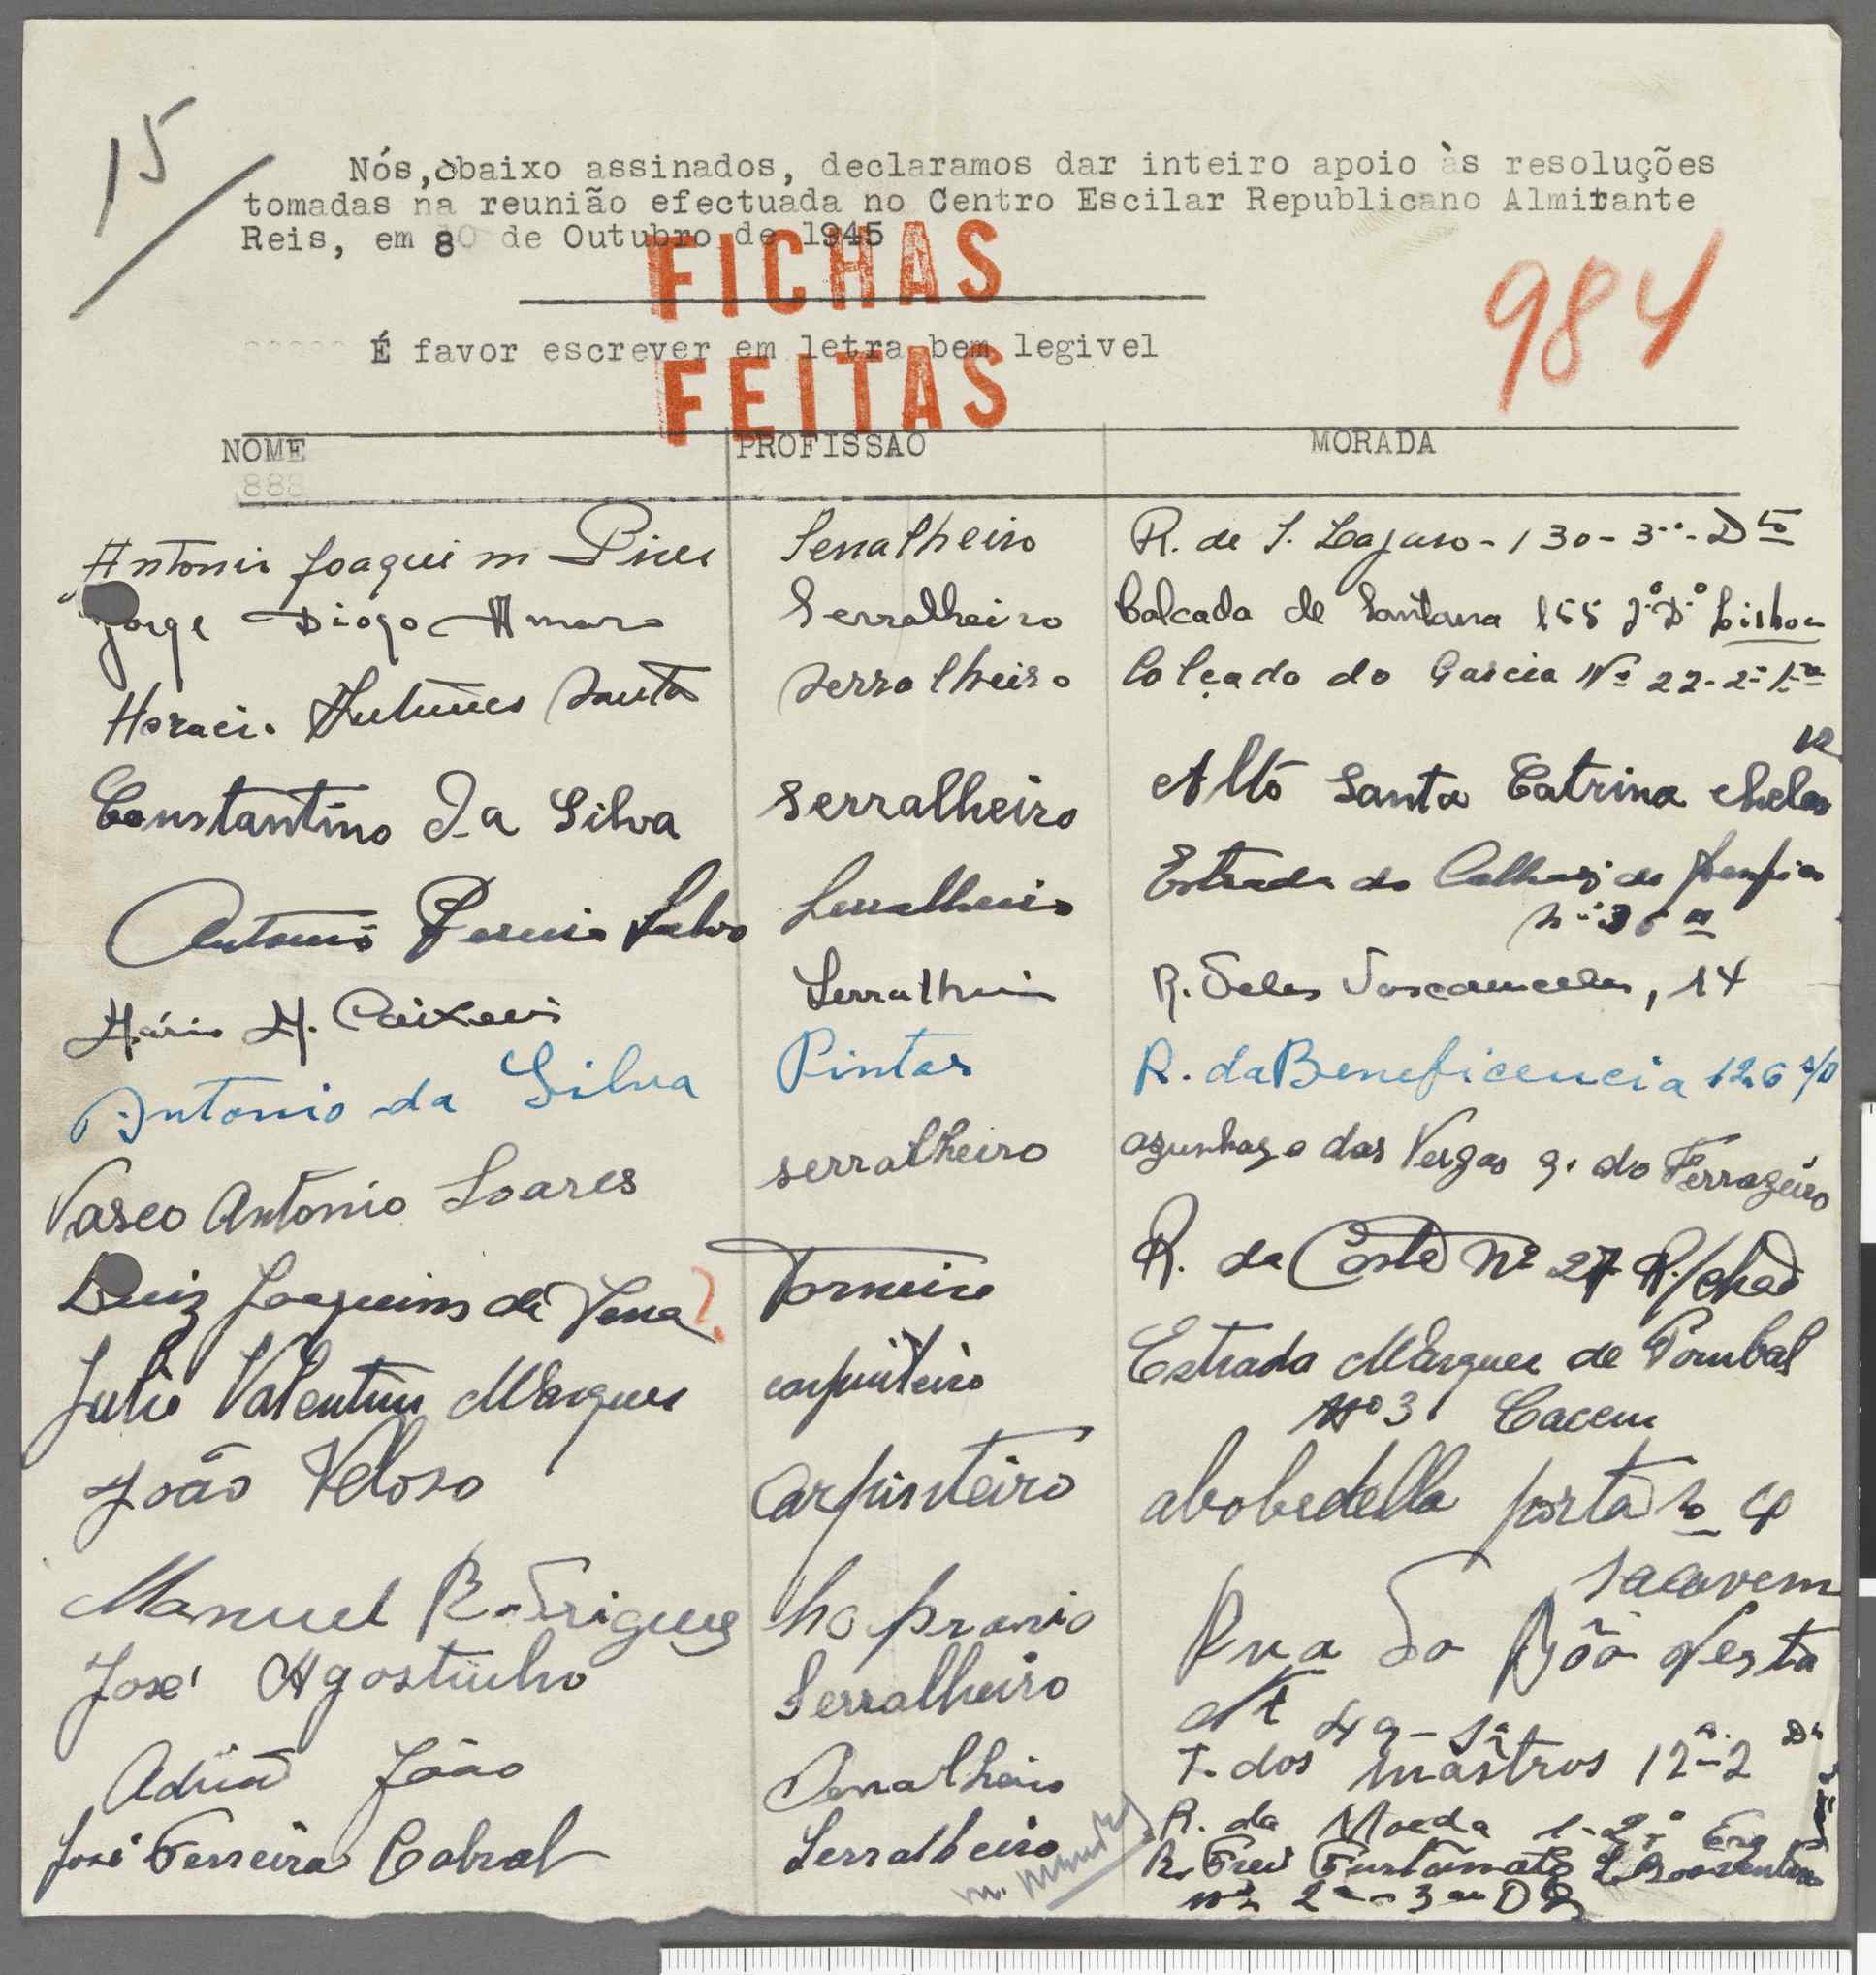 15
Nós, abaixo assinados, declaramos dar inteiro apoio às resoluções
tomadas na reunião efectuada no Centro Escilar Republicano Almirante
Reis, em 8 de Outubro de 1945
FICHAS
984
É favor escrever em letra bem legivel
FEITAS
NOME PROFISSAO MORADA
888
Antonio Joaquim Pires Serralheiro R. de S. Lazaro - 130 - 3º - Dto
Jorge Diogo Amaro Serralheiro Calcada de Santana 155 Lisboa
Horacio Antunes serralheiro Calçada do Garcia Nº 22-2º
Constantino da Silva serralheiro Alto Santa Catrina chelas
Antonio Serralheiro Estrada do Calhariz de Benfica
nº
Mário M. Serralheiro R. Teles Vasconcelos, 14
Antonio da Silva Pintor R. da Beneficencia 126
Vasco Antonio Soares serralheiro azinhaga das Vergas do Ferrageiro
Luiz Joaquim de Sena ? Torneiro R. da Costa Nº 27 R/chao
Julio Valentim Marques carpinteiro Estrada Marques de Pombal
Nº 3 Cacem
João Veloso Carpinteiro abobedella porta nº 4
sacavem
Manuel Rodrigues Rua Do
José Agostinho Serralheiro Nº 49 - 1º
João Serralheiro T. dos mastros 12-2 Dº
R. da Moeda 1-2º Esq
José Ferreira Cabral Serralheiro R. Frei
2 - 3